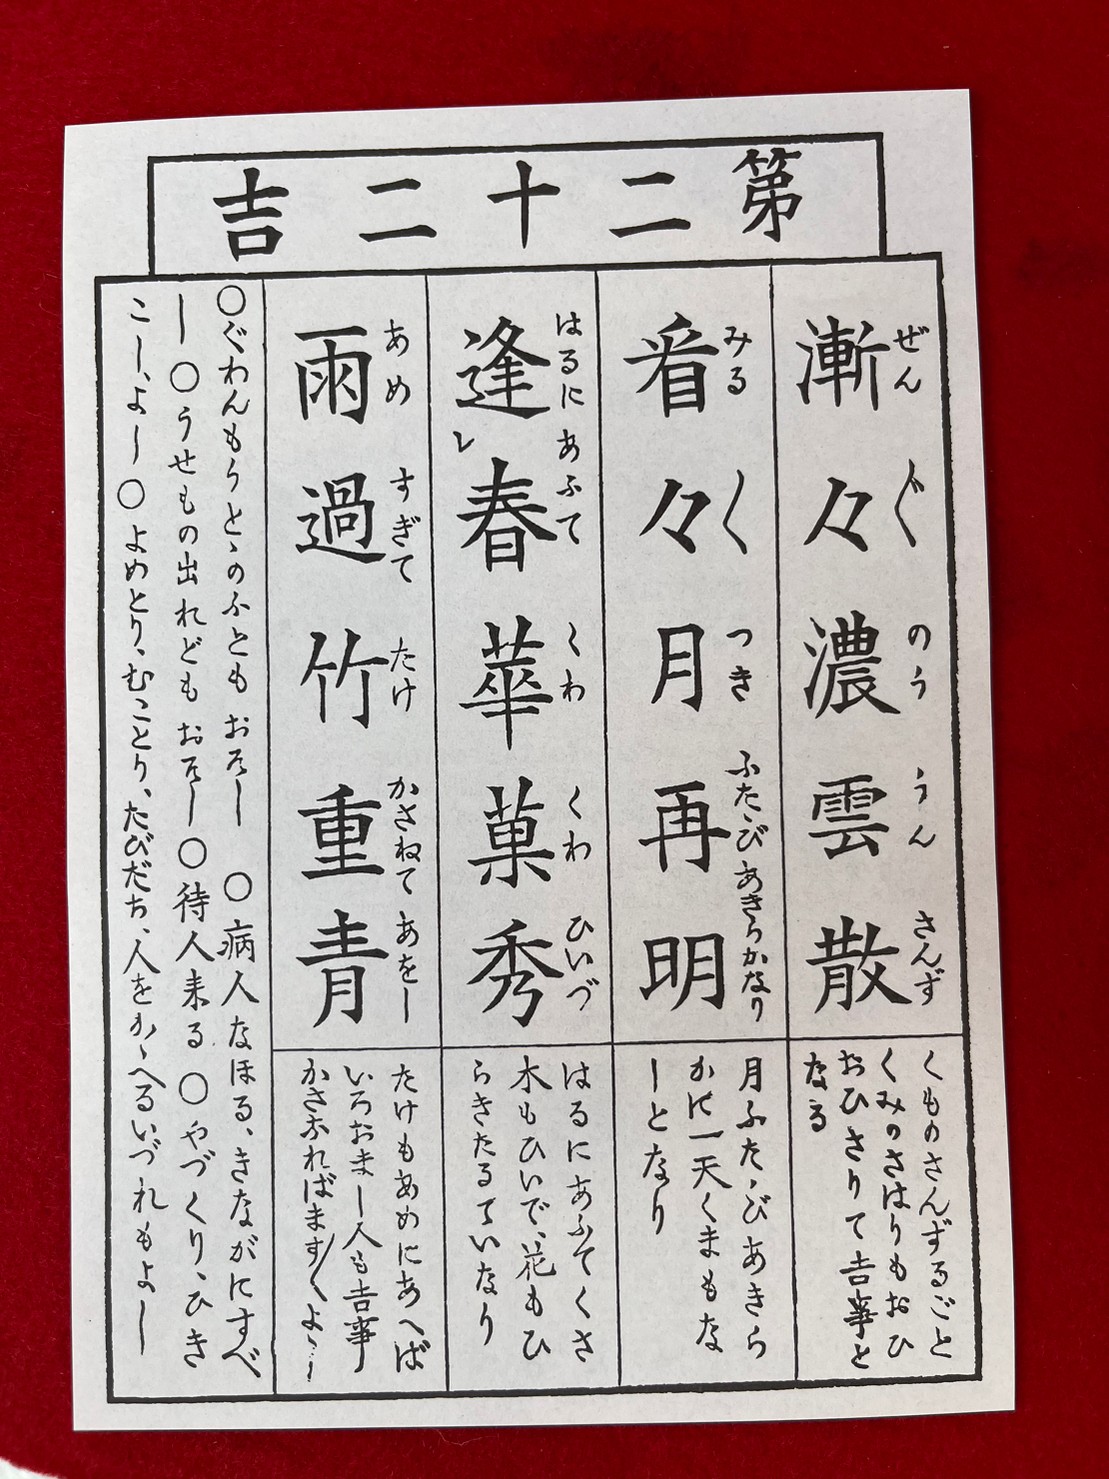 第二十二吉
漸々濃雲散
ぜんぐのううんさんず
くものさんずるごと
くみのさはりもおひ
おひさりて吉事と
なる
看々月再明
みるくつきふたゝびあきらかなり
月ふたゝびあきら
かに一天くまもな
しとなり
逢レ春華菓秀
はるにあふてくわくわひいづ
はるにあふてくさ
木もひいで、花もひ
らきたるていなり
雨過竹重青
あめすぎてたけかさねてあをし
たけもあめにあへば
いろおまし人も吉事
かさなればます〳〵よゝし
〇ぐわんもうとゝのふともおそし 〇病人なほる、きながにすべ
し 〇うせもの出れどもおそし 〇待人来る 〇やづくり、ひき
こし、よし 〇よめとり、むことり、たびだち、人をかゝへるいづれもよし